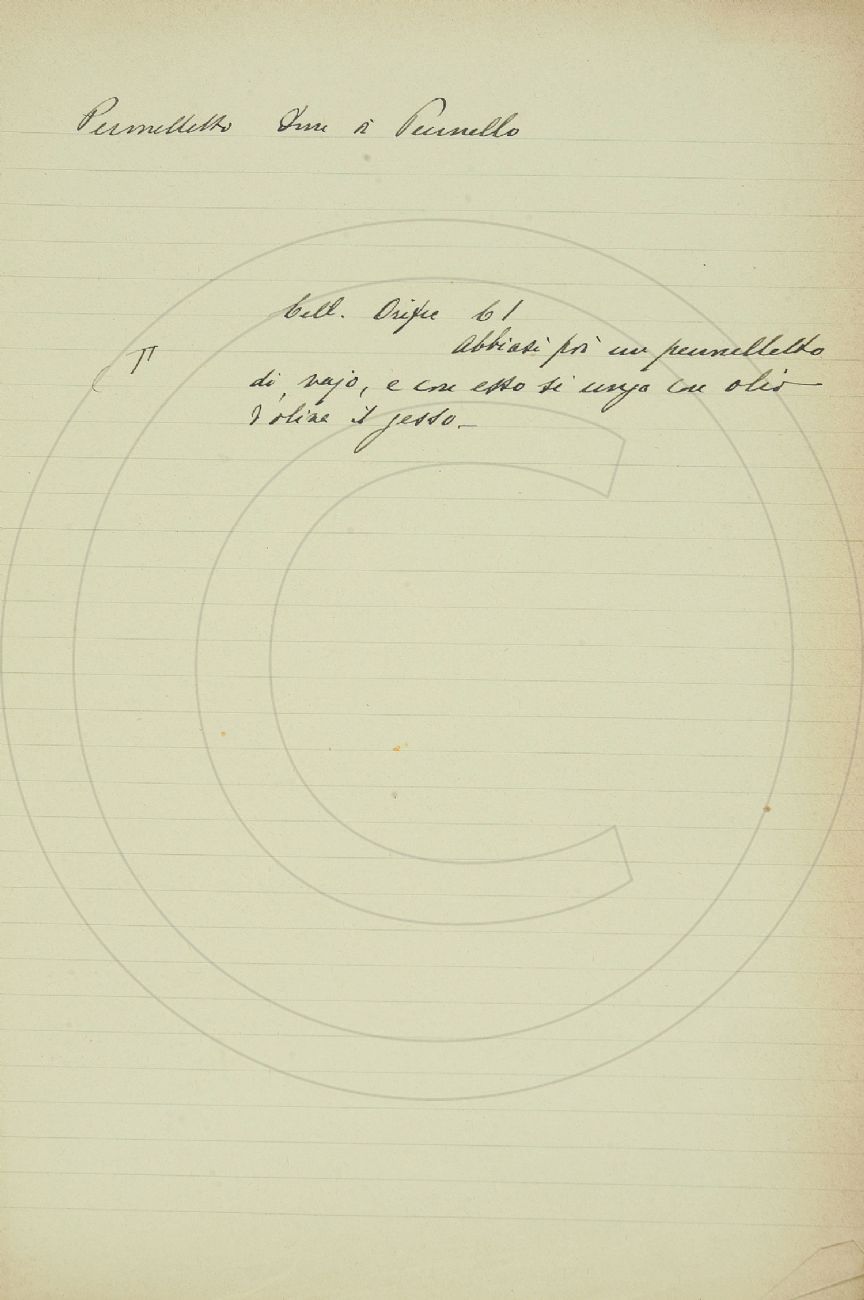 Pennelletto Dim. di Pennello
Cell. Orific. 61
Abbiasi poi un pennelletto
di vajo, e con esso si unga con olio
d'oliva il gesso._